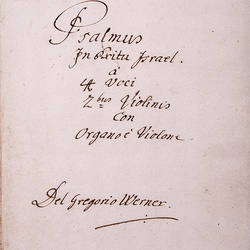 Psalmus
In Exitu Israel.
à
4 Voci
2bus Violinis
Con
Organo è Violone.
Del Gregorio Werner.